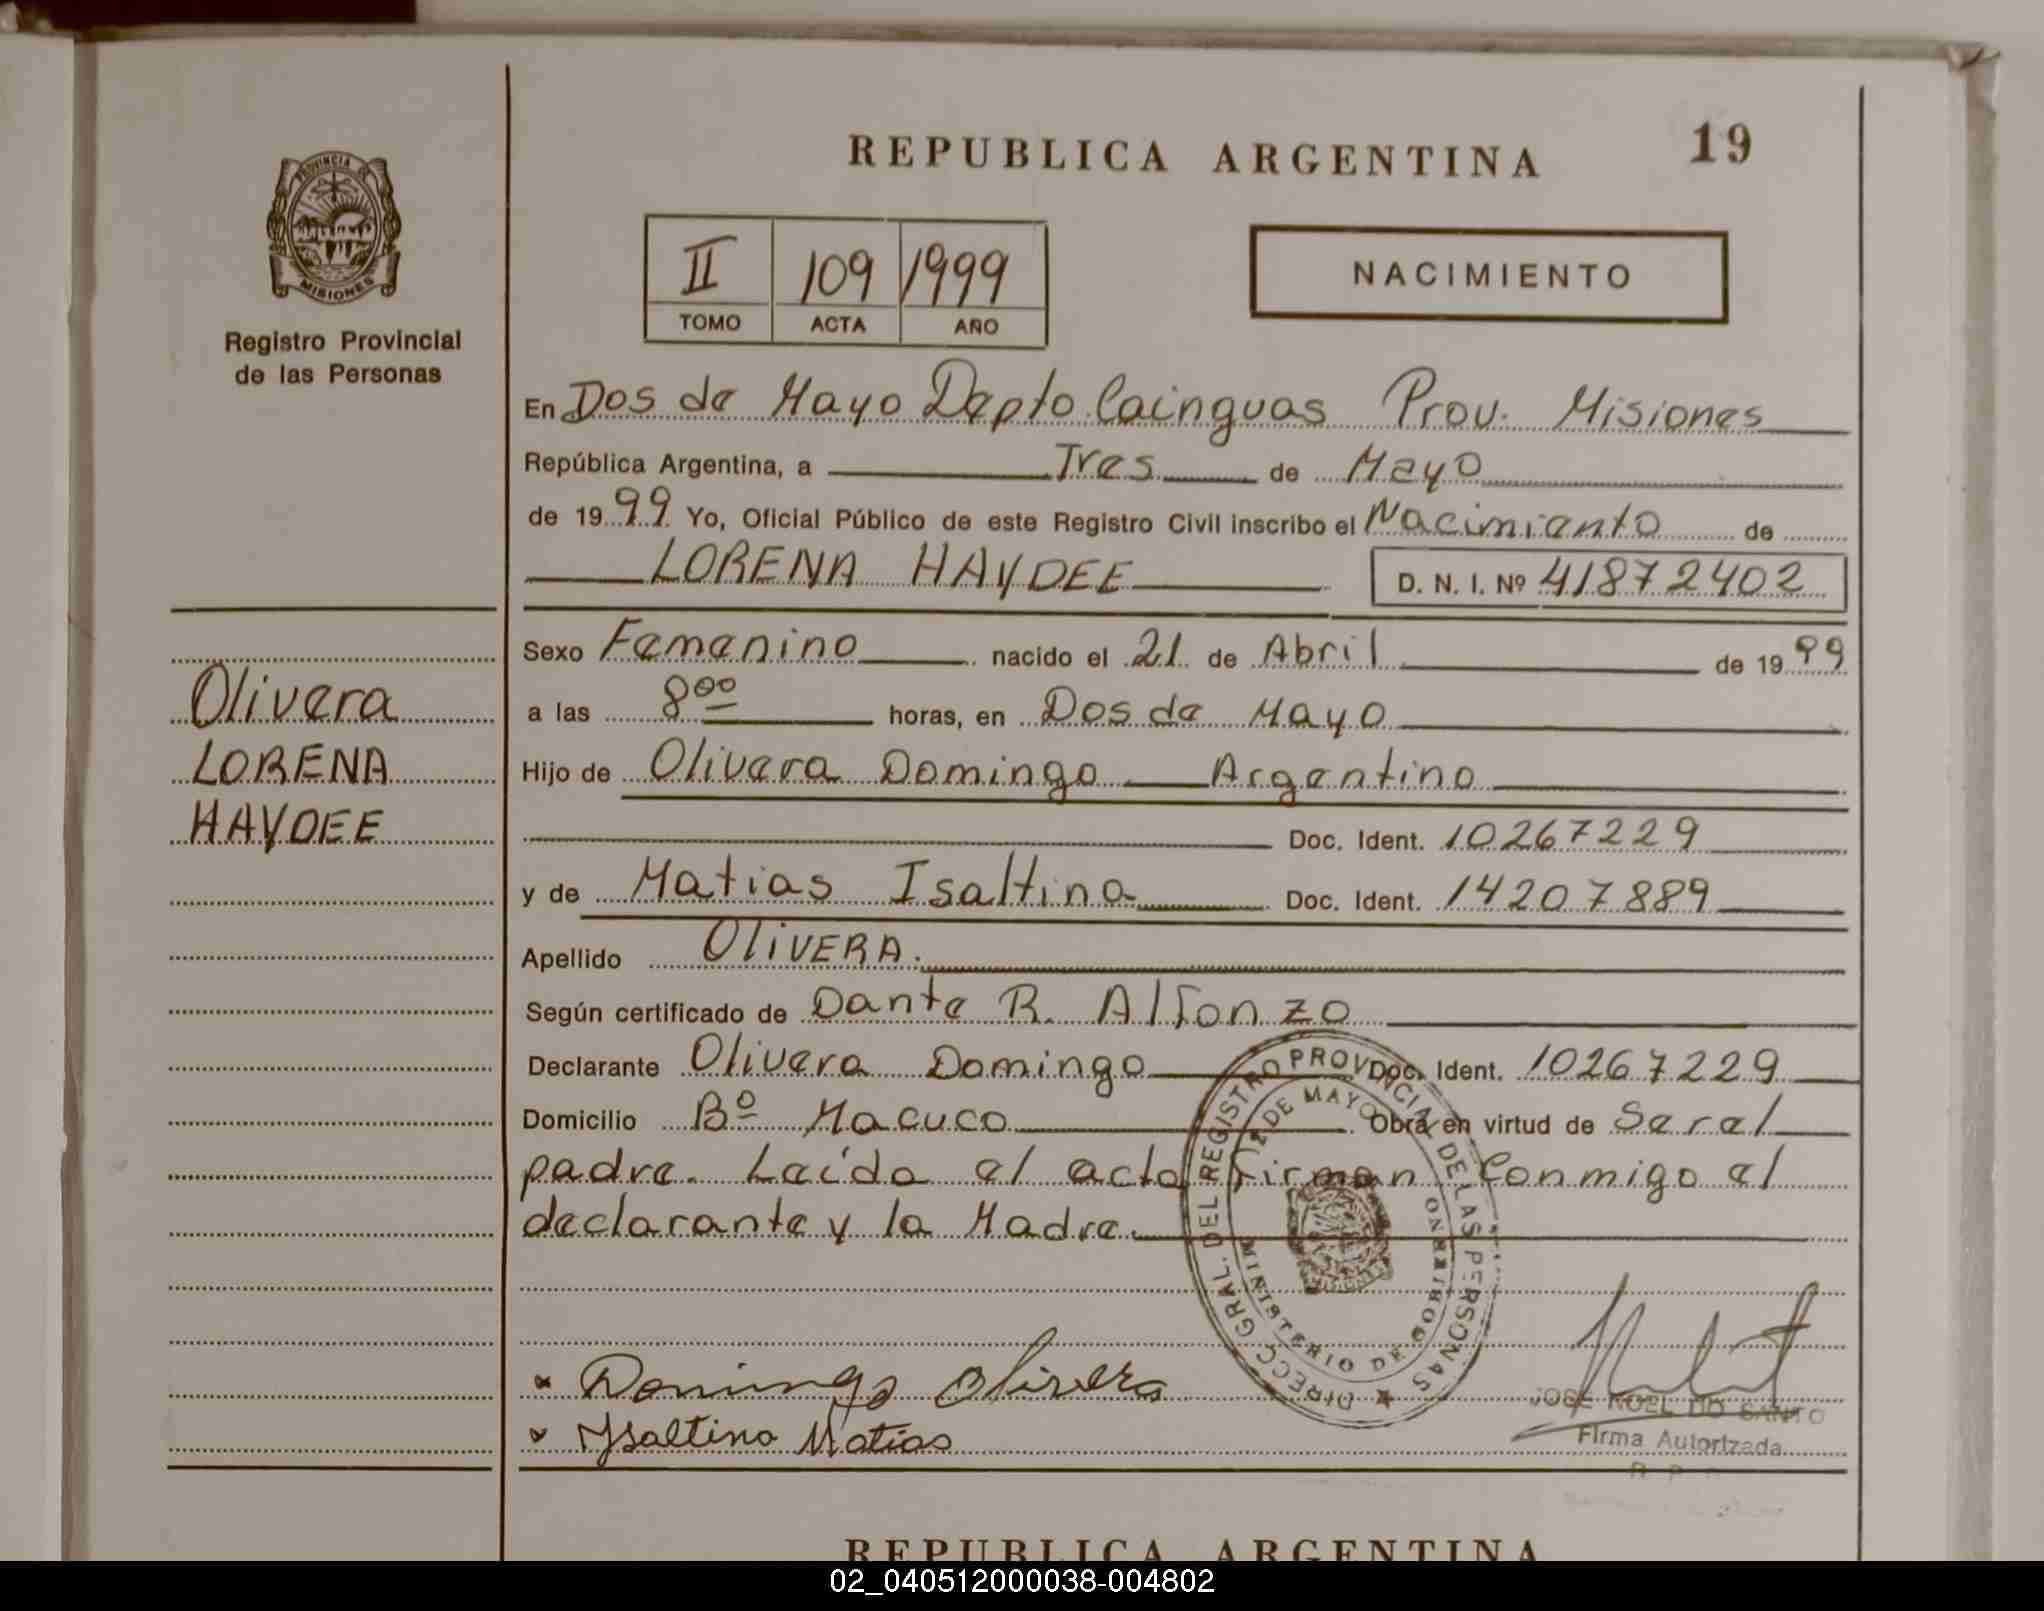 REPUBLICA ARGENTINA 19
PROVINCIA DE
MISIONES
Registro Provincial
de las Personas
II 109 1999
TOMO ACTA AÑO
NACIMIENTO
En Dos de Mayo Depto Cainguas Prov. Misiones
República Argentina, a Tres de Mayo
de 1999 Yo, Oficial Público de este Registro Civil inscribo el Nacimiento de
LORENA HAYDEE D. N. I. Nº 41872402
Sexo Femenino nacido el 21 de Abril de 1999
a las 8⁰⁰ horas, en Dos de Mayo
Hijo de Olivera Domingo Argentino
Doc. Ident. 10267229
y de Matias Isaltina Doc. Ident. 14207889
Apellido OLIVERA.
Según certificado de Dante R. Alfonzo
Declarante Olivera Domingo Doc. Ident. 10267229
Domicilio Bº Macuco Obra en virtud de Ser el
padre. Leída el acta firman Conmigo el
declarante y la Madre.
Olivera
LORENA
HAYDEE
DIRECC. GRAL. DEL REGISTRO PROVINCIAL DE LAS PERSONAS
2 DE MAYO
MINISTERIO DE GOBIERNO
Domingo Olivera
Ysaltina Matias
JOSE NOEL DO SANTO
Firma Autorizada
REPUBLICA ARGENTINA
02_040512000038-004802